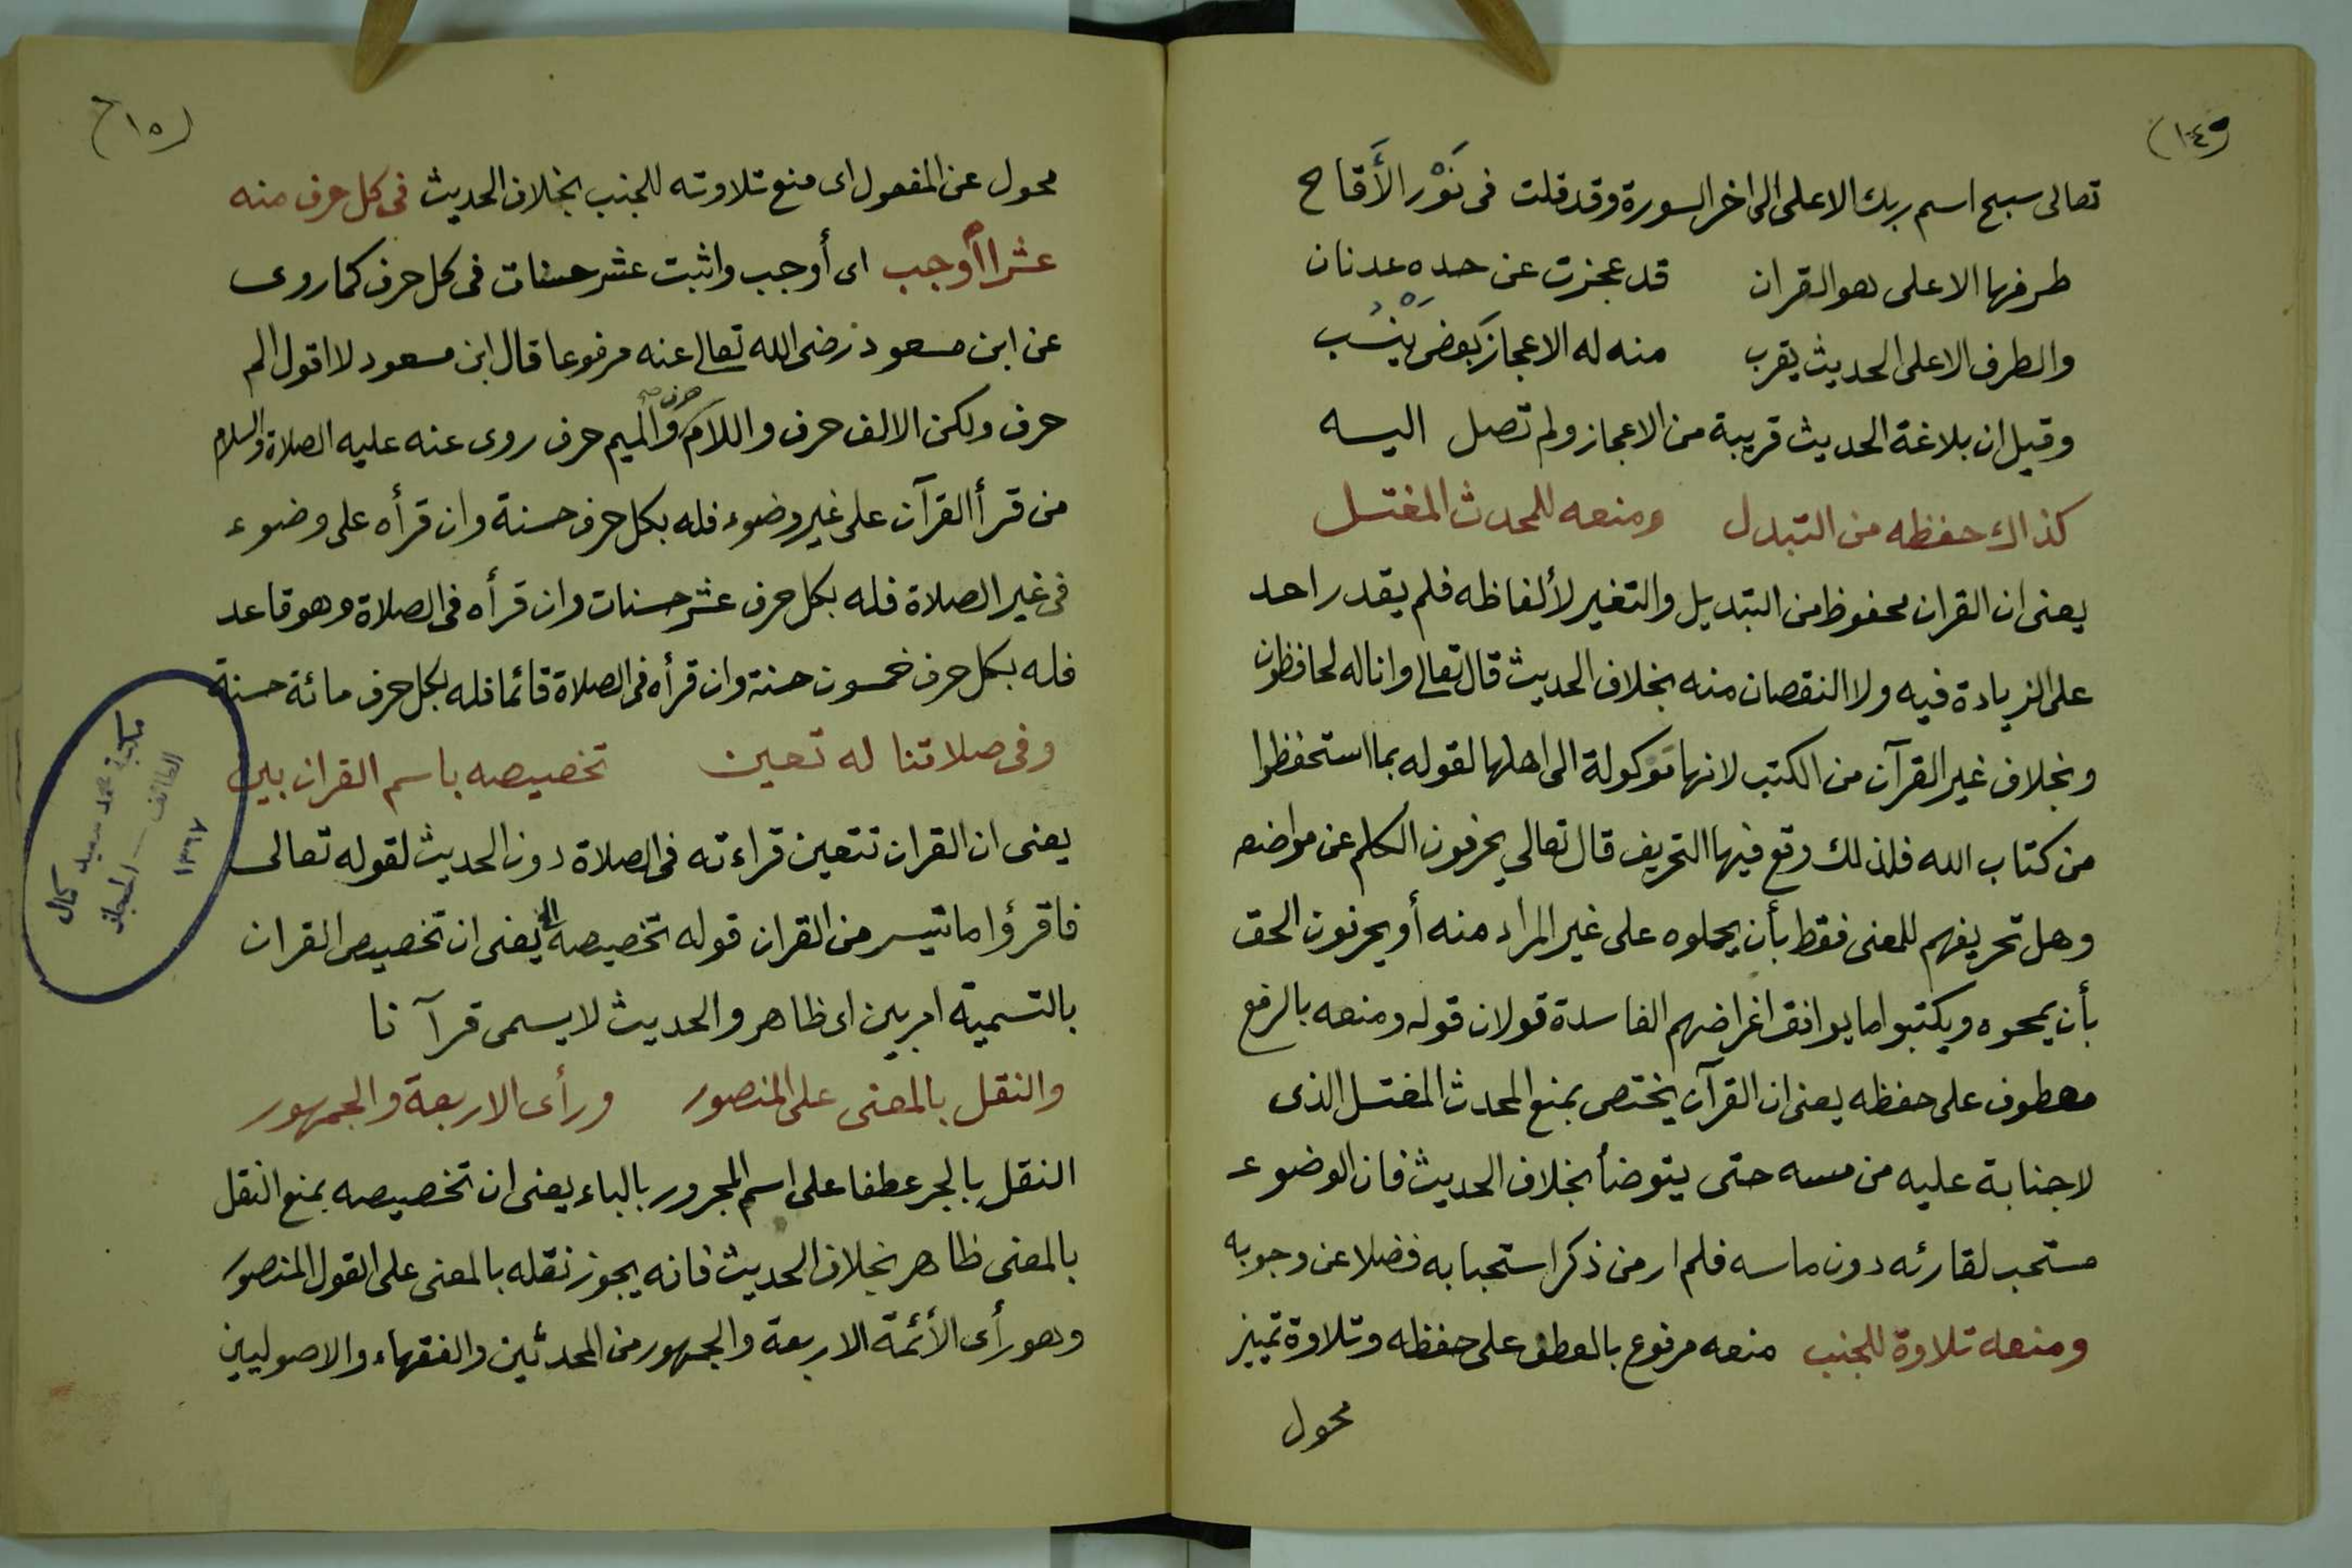 (١٤٩)
تعالى سبح اسم ربك الاعلى الى اخر السورة وقد قلت فى نَوْر الأَقاح
طرفها الاعلى هو القران قد عجزت عن حده عدنان
والطرف الاعلى الحديث يقرب منه له الاعجاز بَعضٌ يَنْسُب
وقيل ان بلاغة الحديث قريبة من الاعجاز ولم تصل اليه
كذاك حفظه من التبدل ومنعه للمحدث المغتسل
يعنى ان القران محفوظ من التبديل والتغير لألفاظه فلم يقدر احد
على الزيادة فيه ولا النقصان منه بخلاف الحديث قال تعالى وانا له لحافظون
وبخلاف غير القرآن من الكتب لانها موكولة الى اهلها لقوله بما استحفظوا
من كتاب الله فلذلك وقع فيها التحريف قال تعالى يحرفون الكلم عن مواضعه
وهل تحريفهم للمعنى فقط بأن يحملوه على غير المراد منه أو يحرفون الحق
بأن يمحوه ويكتبوا ما يوافق اغراضهم الفاسدة قولان قوله ومنعه بالرفع
معطوف على حفظه يعنى ان القرآن يختص بمنع المحدث المغتسل الذى
لا جنابة عليه من مسه حتى يتوضأ بخلاف الحديث فان الوضوء
مستحب لقارئه دون ماسه فلم ار من ذكر استحبابه فضلا عن وجوبه
ومنعه تلاوة للجنب منعه مرفوع بالعطف على حفظه وتلاوة تمييز
محول
(١٥٠)
محول عن المفعول اى منع تلاوته للجنب بخلاف الحديث فى كل حرف منه
عشرا أوجب اى أوجب واثبت عشر حسنات فى كل حرف كما روى
عن ابن مسعود رضى الله تعالى عنه مرفوعا قال ابن مسعود لا اقول الم
حرف ولكن الالف حرف واللام حرف والميم حرف روى عنه عليه الصلاة والسلام
من قرأ القرآن على غير وضوء فله بكل حرف حسنة وان قرأه على وضوء
فى غير الصلاة فله بكل حرف عشر حسنات وان قرأه فى الصلاة وهو قاعد
فله بكل حرف خمسون حسنة وان قرأه فى الصلاة قائما فله بكل حرف مائة حسنة
وفى صلاتنا له تعين تخصيصه باسم القران بين
يعنى ان القران تتعين قراءته فى الصلاة دون الحديث لقوله تعالى
فاقرؤا ما تيسر من القران قوله تخصيصه الخ يعنى ان تخصيص القران
بالتسمية امر بين اى ظاهر والحديث لا يسمى قرآنا
والنقل بالمعنى على المنصور ورأى الاربعة والجمهور
النقل بالجر عطفا على اسم المجرور بالباء يعنى ان تخصيصه بمنع النقل
بالمعنى ظاهر بخلاف الحديث فانه يجوز نقله بالمعنى على القول المنصور
وهو رأى الأئمة الاربعة والجمهور من المحدثين والفقهاء والاصوليين
مكتبة محمد سعيد كمال
الطائف - الحجاز
١٣٦٧